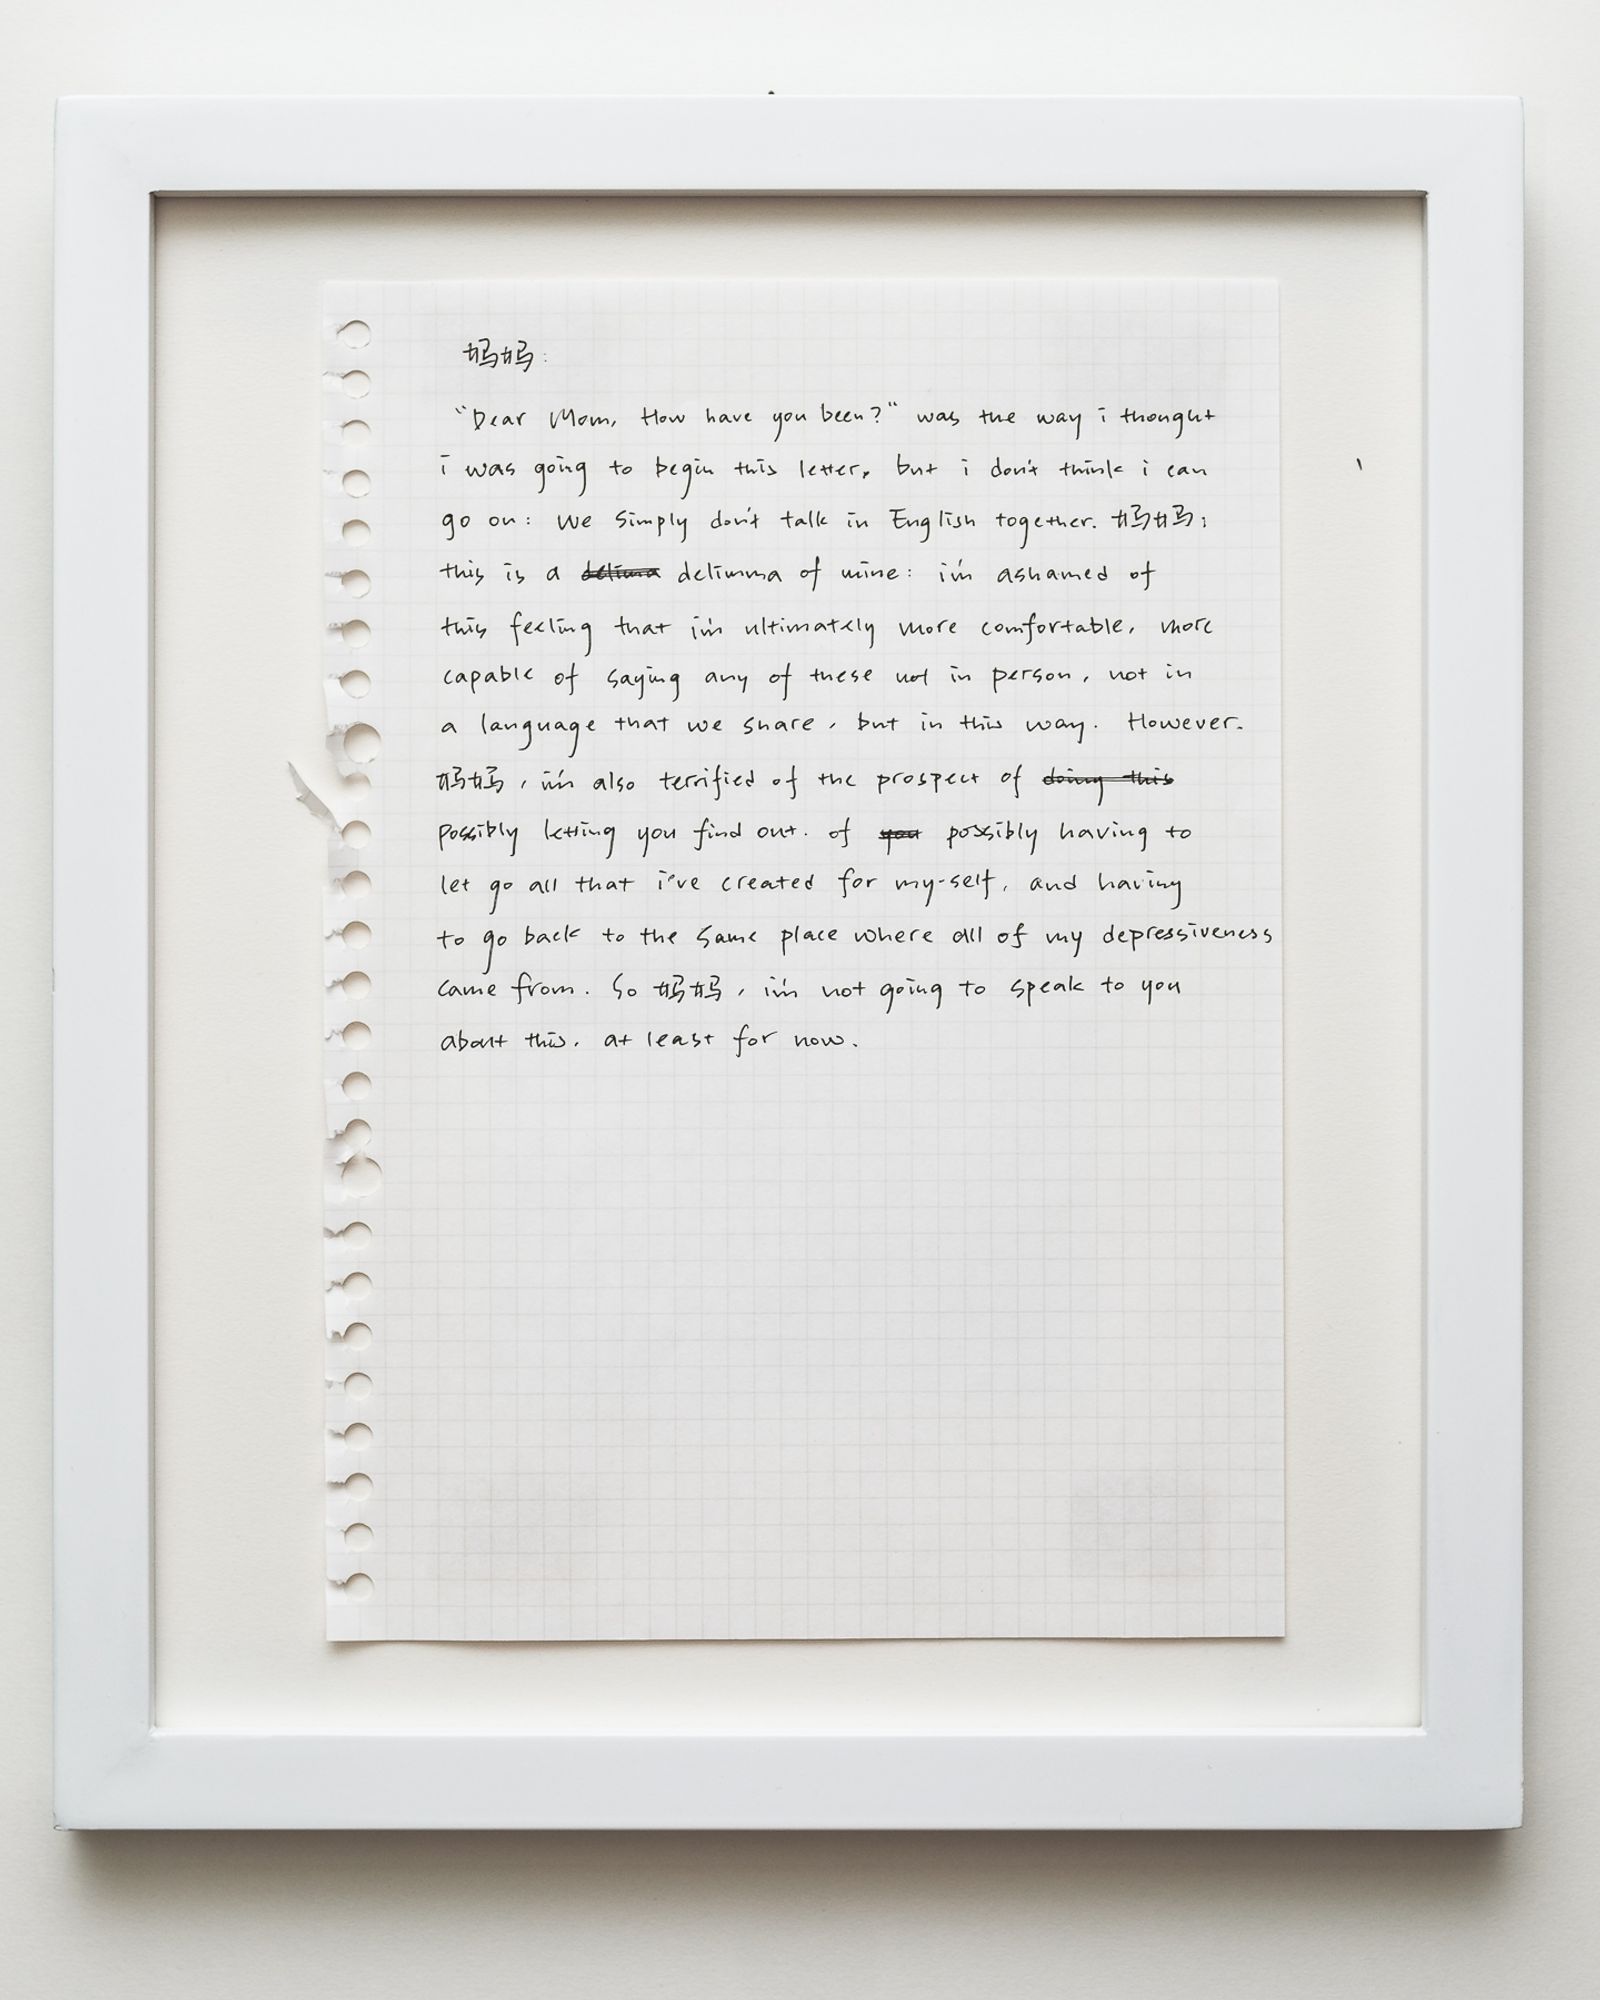 妈妈:
"Dear Mom, How have you been?" was the way i thought
i was going to begin this letter, but i don't think i can
go on: We simply don't talk in English together. 妈妈:
this is a delima delimma of mine: i'm ashamed of
this feeling that i'm ultimately more comfortable, more
capable of saying any of these not in person, not in
a language that we share, but in this way. However,
妈妈, i'm also terrified of the prospect of doing this
possibly letting you find out. of you possibly having to
let go all that i've created for my-self, and having
to go back to the same place where all of my depressiveness
came from. So 妈妈, i'm not going to speak to you
about this, at least for now.